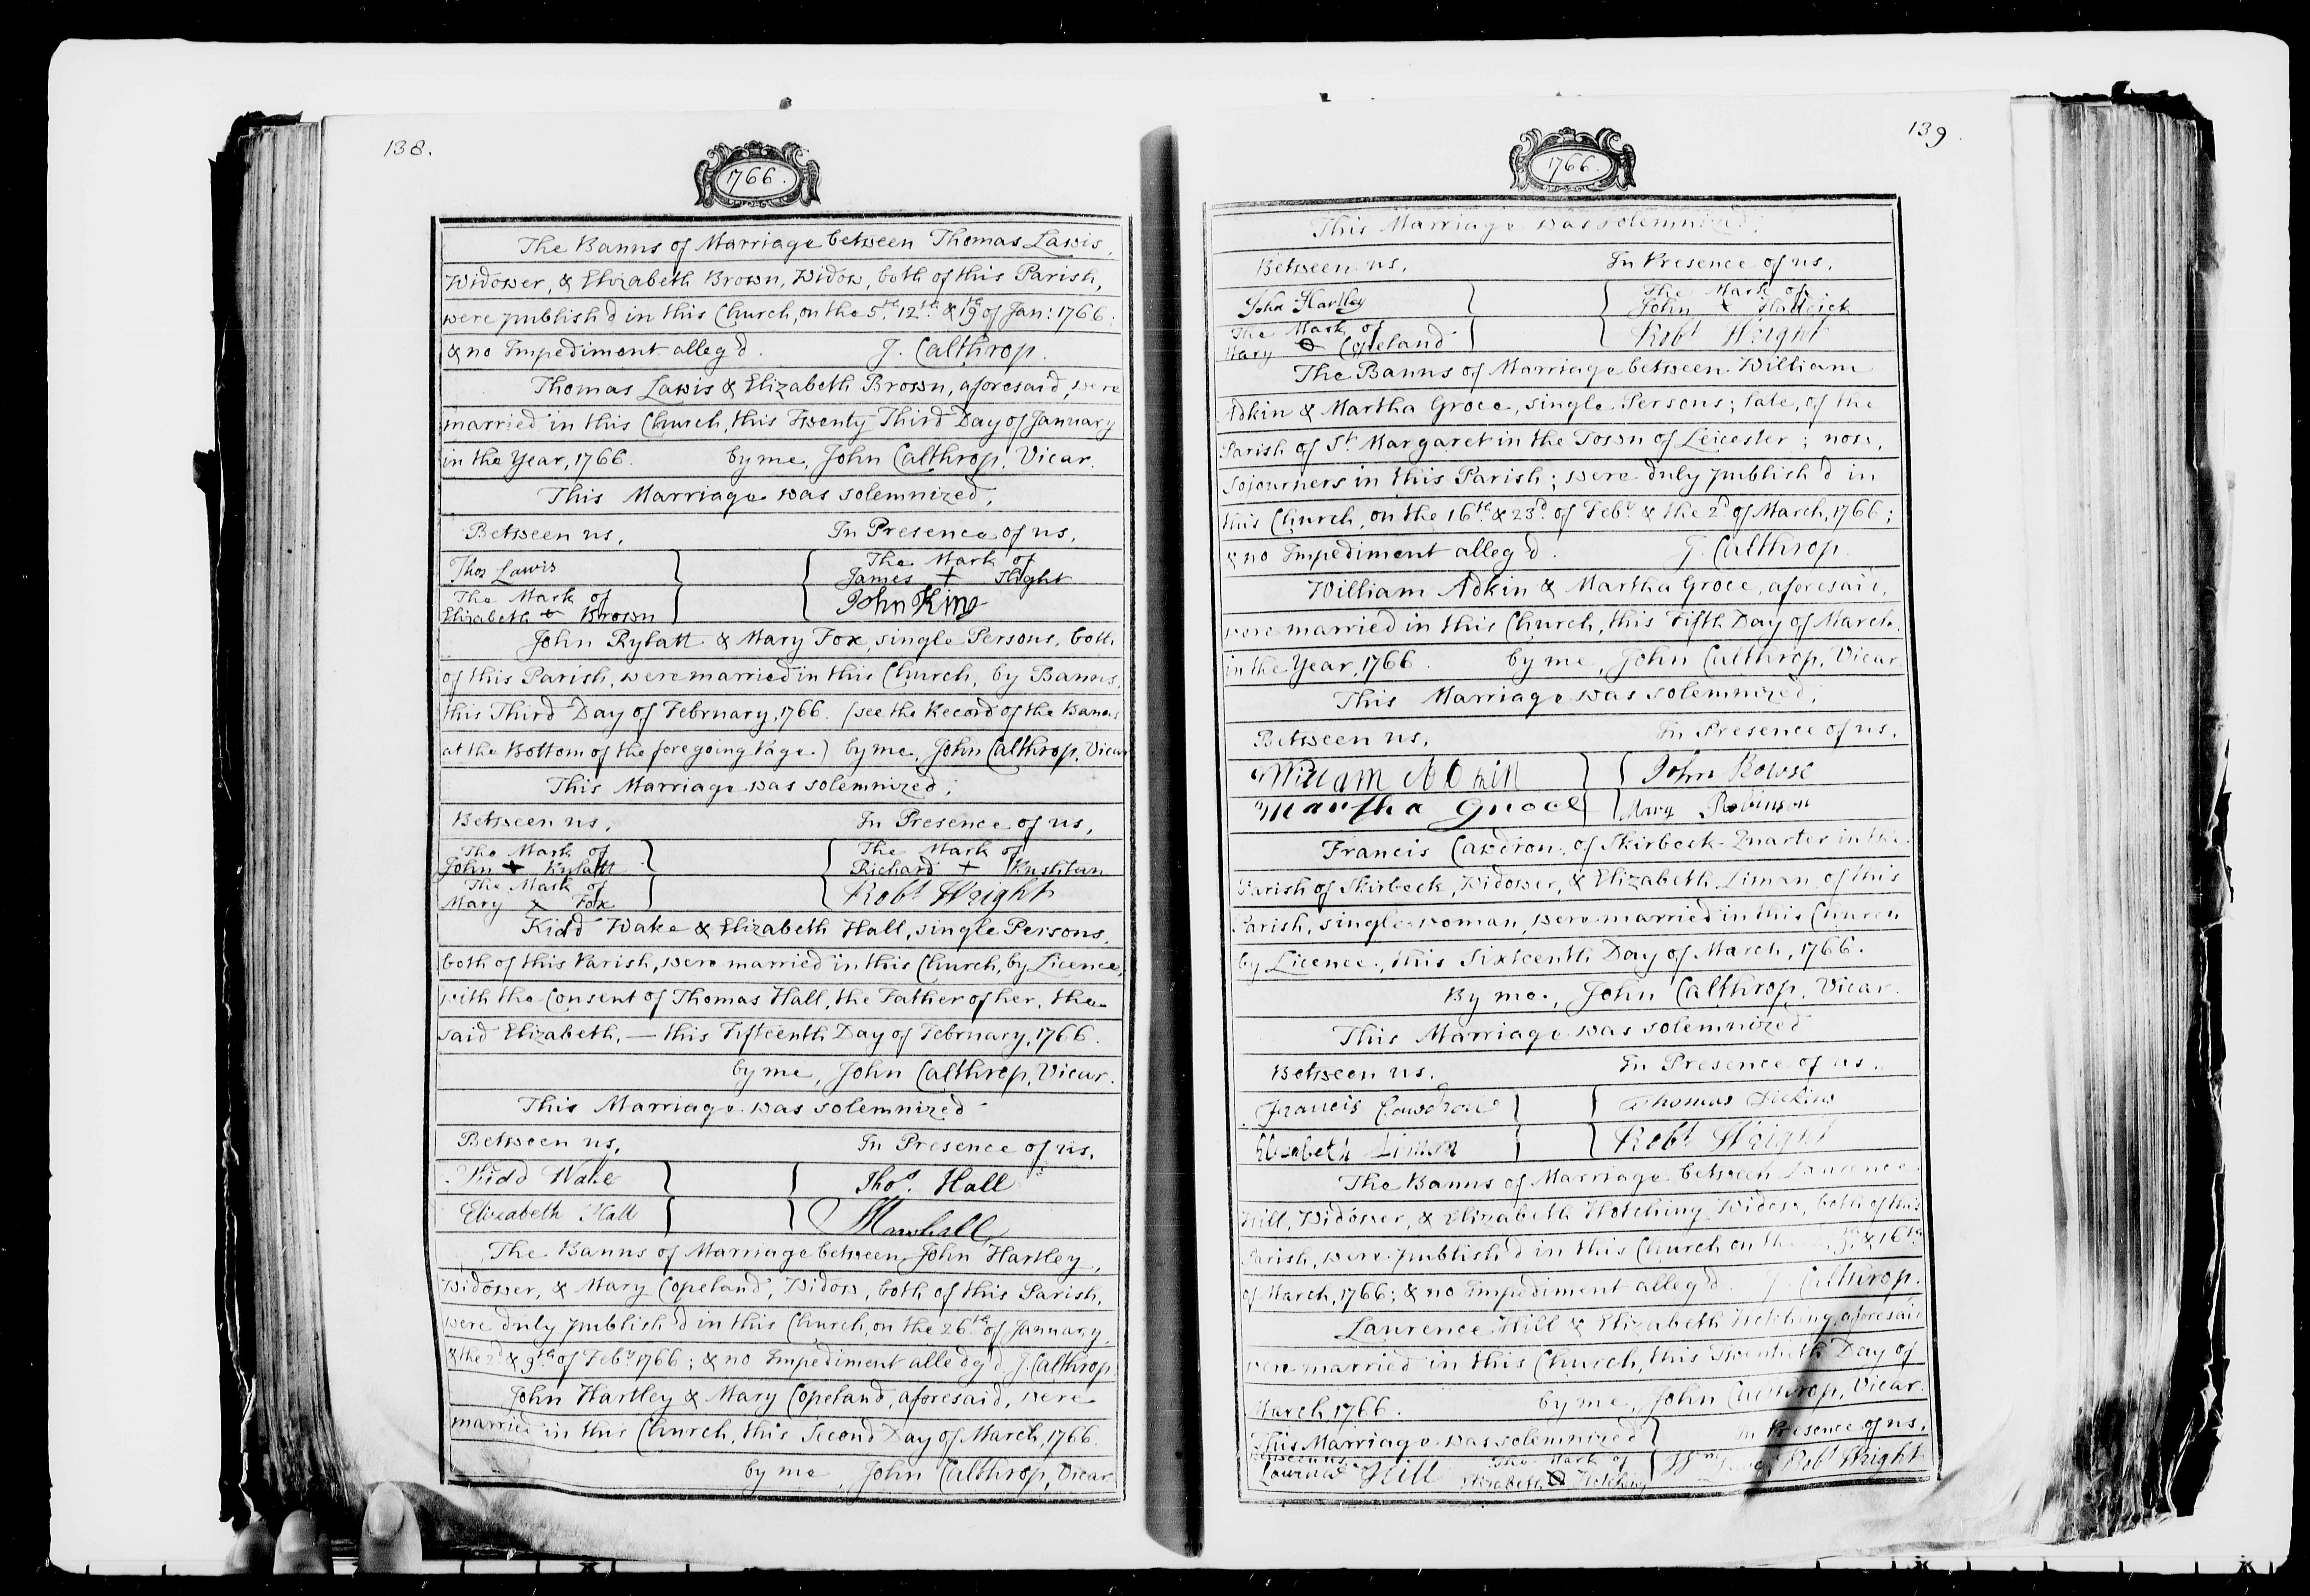 138.
1766.
The Banns of Marriage between Thomas Lawis,
Widower, & Elizabeth Brown, Widow, both of this Parish,
were publish'd in this Church, on the 5th. 12th. & 19th of Jan: 1766:
& no Impediment alleg'd. J. Calthrop.
Thomas Lawis & Elizabeth Brown, aforesaid, were
married in this Church, this Twenty Third Day of January
in the Year, 1766. by me, John Calthrop, Vicar.
This Marriage was solemnized,
Between us, In Presence of us,
Thos Lawis The Mark of James + Hight
The Mark of Elizabeth + Brown John King
John Rylatt & Mary Fox, single Persons, both
of this Parish, were married in this Church, by Banns,
this Third Day of February, 1766. (see the Record of the Banns
at the Bottom of the foregoing Page.) by me, John Calthrop, Vicar
This Marriage was solemnized,
Between us, In Presence of us,
The Mark of John + Rylatt The Mark of Richard +
The Mark of Mary x Fox Robt Wright
Kidd Wake & Elizabeth Hall, single Persons,
both of this Parish, were married in this Church, by Licence,
with the Consent of Thomas Hall, the Father of her, the
said Elizabeth, — this Fifteenth Day of February, 1766.
by me, John Calthrop, Vicar.
This Marriage was solemnized
Between us, In Presence of us,
Kidd Wake Thos. Hall
Elizabeth Hall Marshall
The Banns of Marriage between John Hartley,
Widower, & Mary Copeland, Widow, both of this Parish,
were duly publish'd in this Church, on the 26th. of January,
& the 2d & 9th of Feby 1766; & no Impediment alledg'd, J. Calthrop
John Hartley & Mary Copeland, aforesaid, were
married in this Church, this Second Day of March, 1766.
by me, John Calthrop, Vicar
139.
1766.
This Marriage was solemnized,
Between us, In Presence of us,
John Hartley The Mark of John +
The Mark of Mary O Copeland Robt Wright
The Banns of Marriage between William
Adkin & Martha Groce, single Persons; late, of the
Parish of St. Margaret in the Town of Leicester; now,
Sojourners in this Parish; were duly publish'd in
this Church, on the 16th. & 23d. of Feby. & the 2d. of March, 1766;
& no Impediment alleg'd. J. Calthrop.
William Adkin & Martha Groce, aforesaid,
were married in this Church, this Fifth Day of March,
in the Year, 1766. by me, John Calthrop, Vicar.
This Marriage was solemnized,
Between us, In Presence of us,
William Adkin John Rowse
Martha Groce Mary Robinson
Francis Cawdron, of Skirbeck-Quarter in the
Parish of Skirbeck, Widower, & Elizabeth Liman of this
Parish, single woman, were married in this Church
by Licence, this Sixteenth Day of March, 1766.
By me, John Calthrop, Vicar.
This Marriage was solemnized
Between us, In Presence of us,
Francis Cawdron Thomas Dickins
Elizabeth Liman Robt Wright
The Banns of Marriage between Laurence
Hill, Widower, & Elizabeth Hotching, Widow, both of this
Parish, were publish'd in this Church on the & 16th
of March, 1766; & no Impediment alleg'd. J. Calthrop.
Laurence Hill & Elizabeth Hotching, aforesaid
were married in this Church, this Twentieth Day of
March, 1766. by me, John Calthrop, Vicar.
This Marriage was solemnized In Presence of us,
Between us
Laurence Hill The Mark of Elizabeth O Hotching Wm Robt Wright